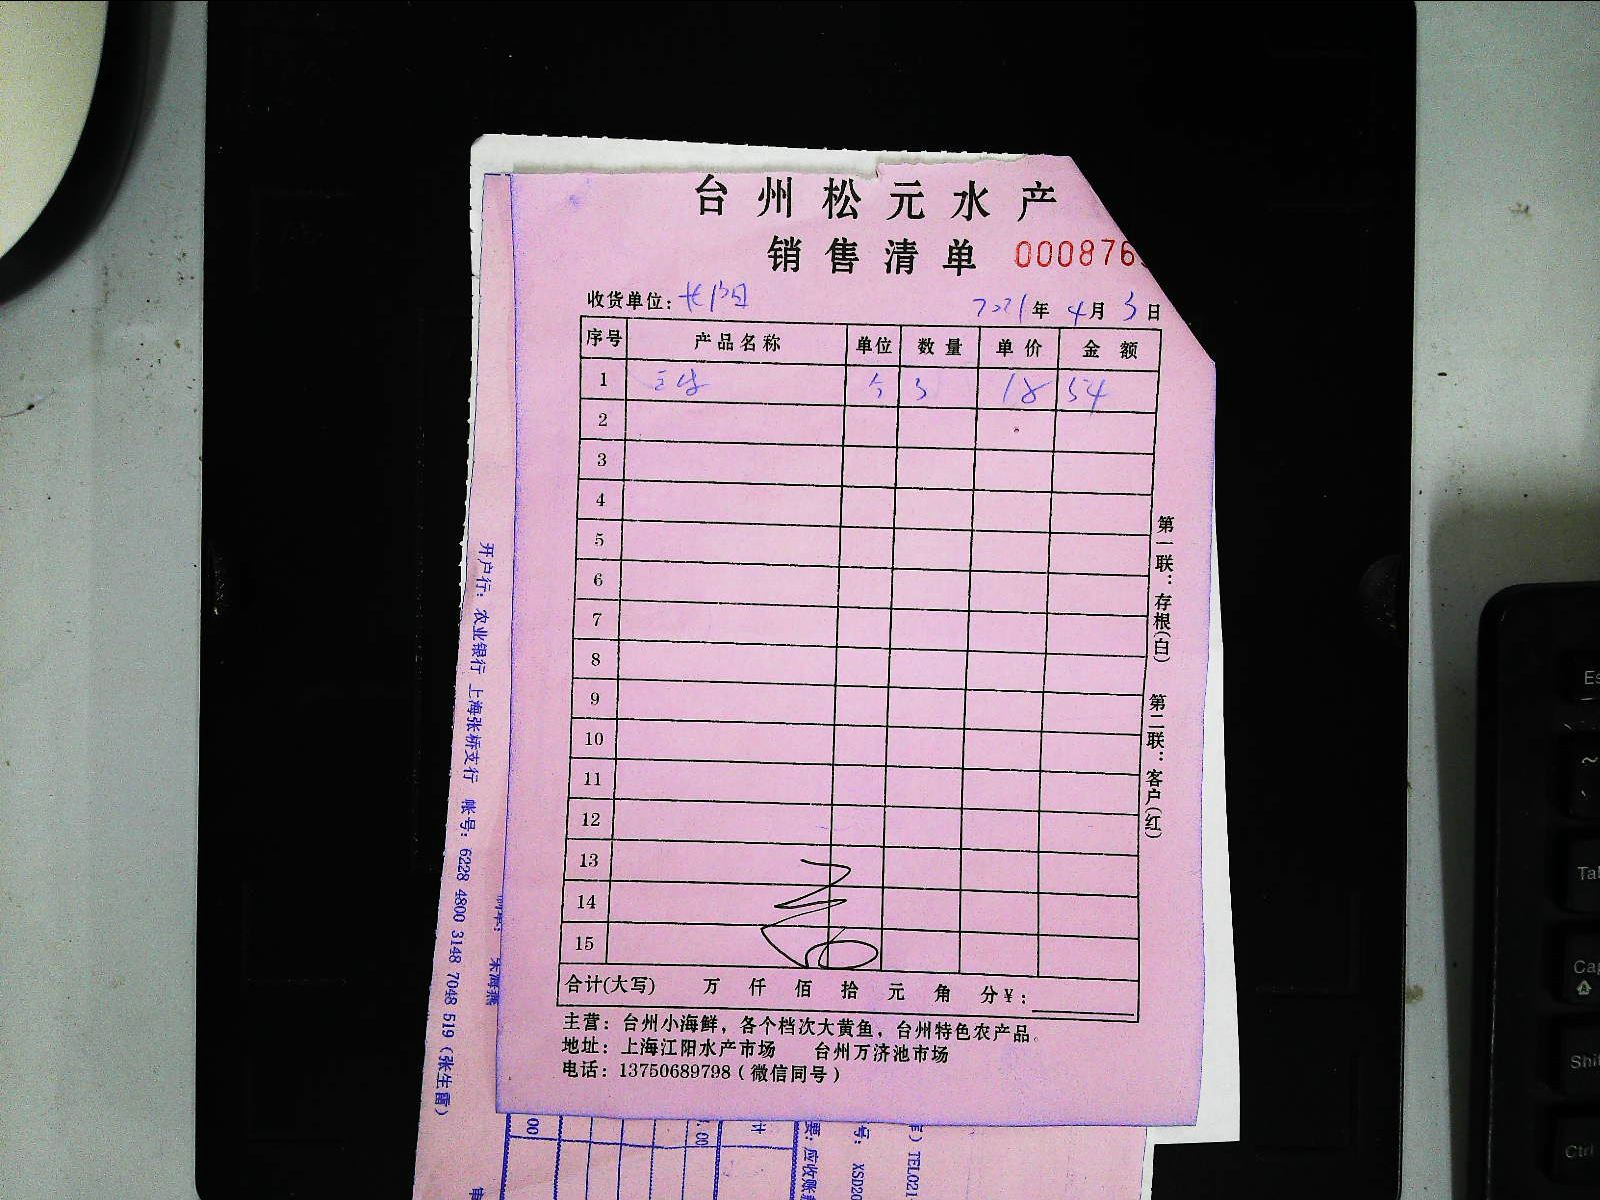 台州松元水产
销售清单 000876
收货单位: 2021年4月3日
序号 产品名称 单位 数量 单价 金额
1 3 18 54
2
3
4
5
6
7
8
9
10
11
12
13
14
15
合计(大写) 万 仟 佰 拾 元 角 分¥:
主营：台州小海鲜，各个档次大黄鱼，台州特色农产品。
地址：上海江阳水产市场 台州万济池市场
电话：13750689798（微信同号）
第一联：存根(白) 第二联：客户(红)
开户行：农业银行 上海张桥支行 帐号：6228 4800 3148 7048 519（张生雷）
朱海燕
00
.00
应收账
号: XSD20
TEL021
Tab
Ctrl